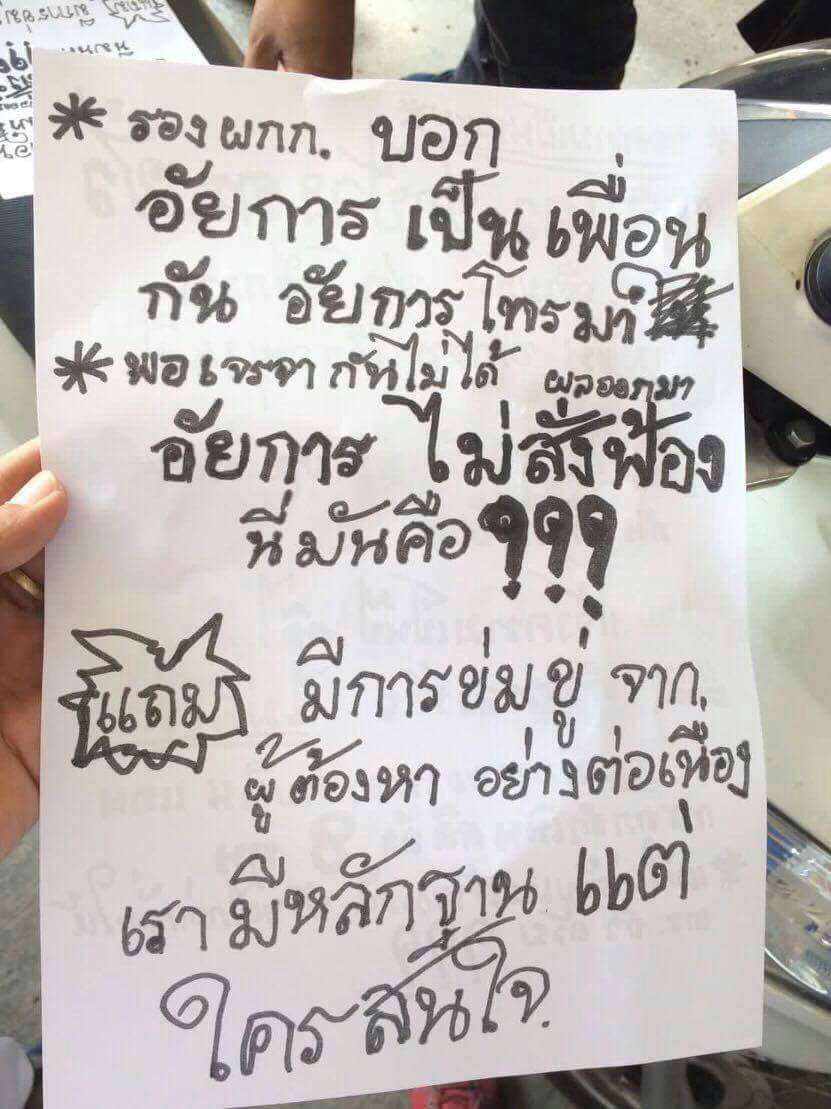 * รอง ผกก. บอก
อัยการ เป็น เพื่อน
กัน อัยการ โทรมา
* พอ เจรจา กันไม่ได้ ผลออกมา
อัยการ ไม่สั่งฟ้อง
นี่มันคือ ???
แถม มีการข่มขู่ จาก
ผู้ต้องหา อย่างต่อเนื่อง
เรา มีหลักฐาน แต่
ใครสนใจ.